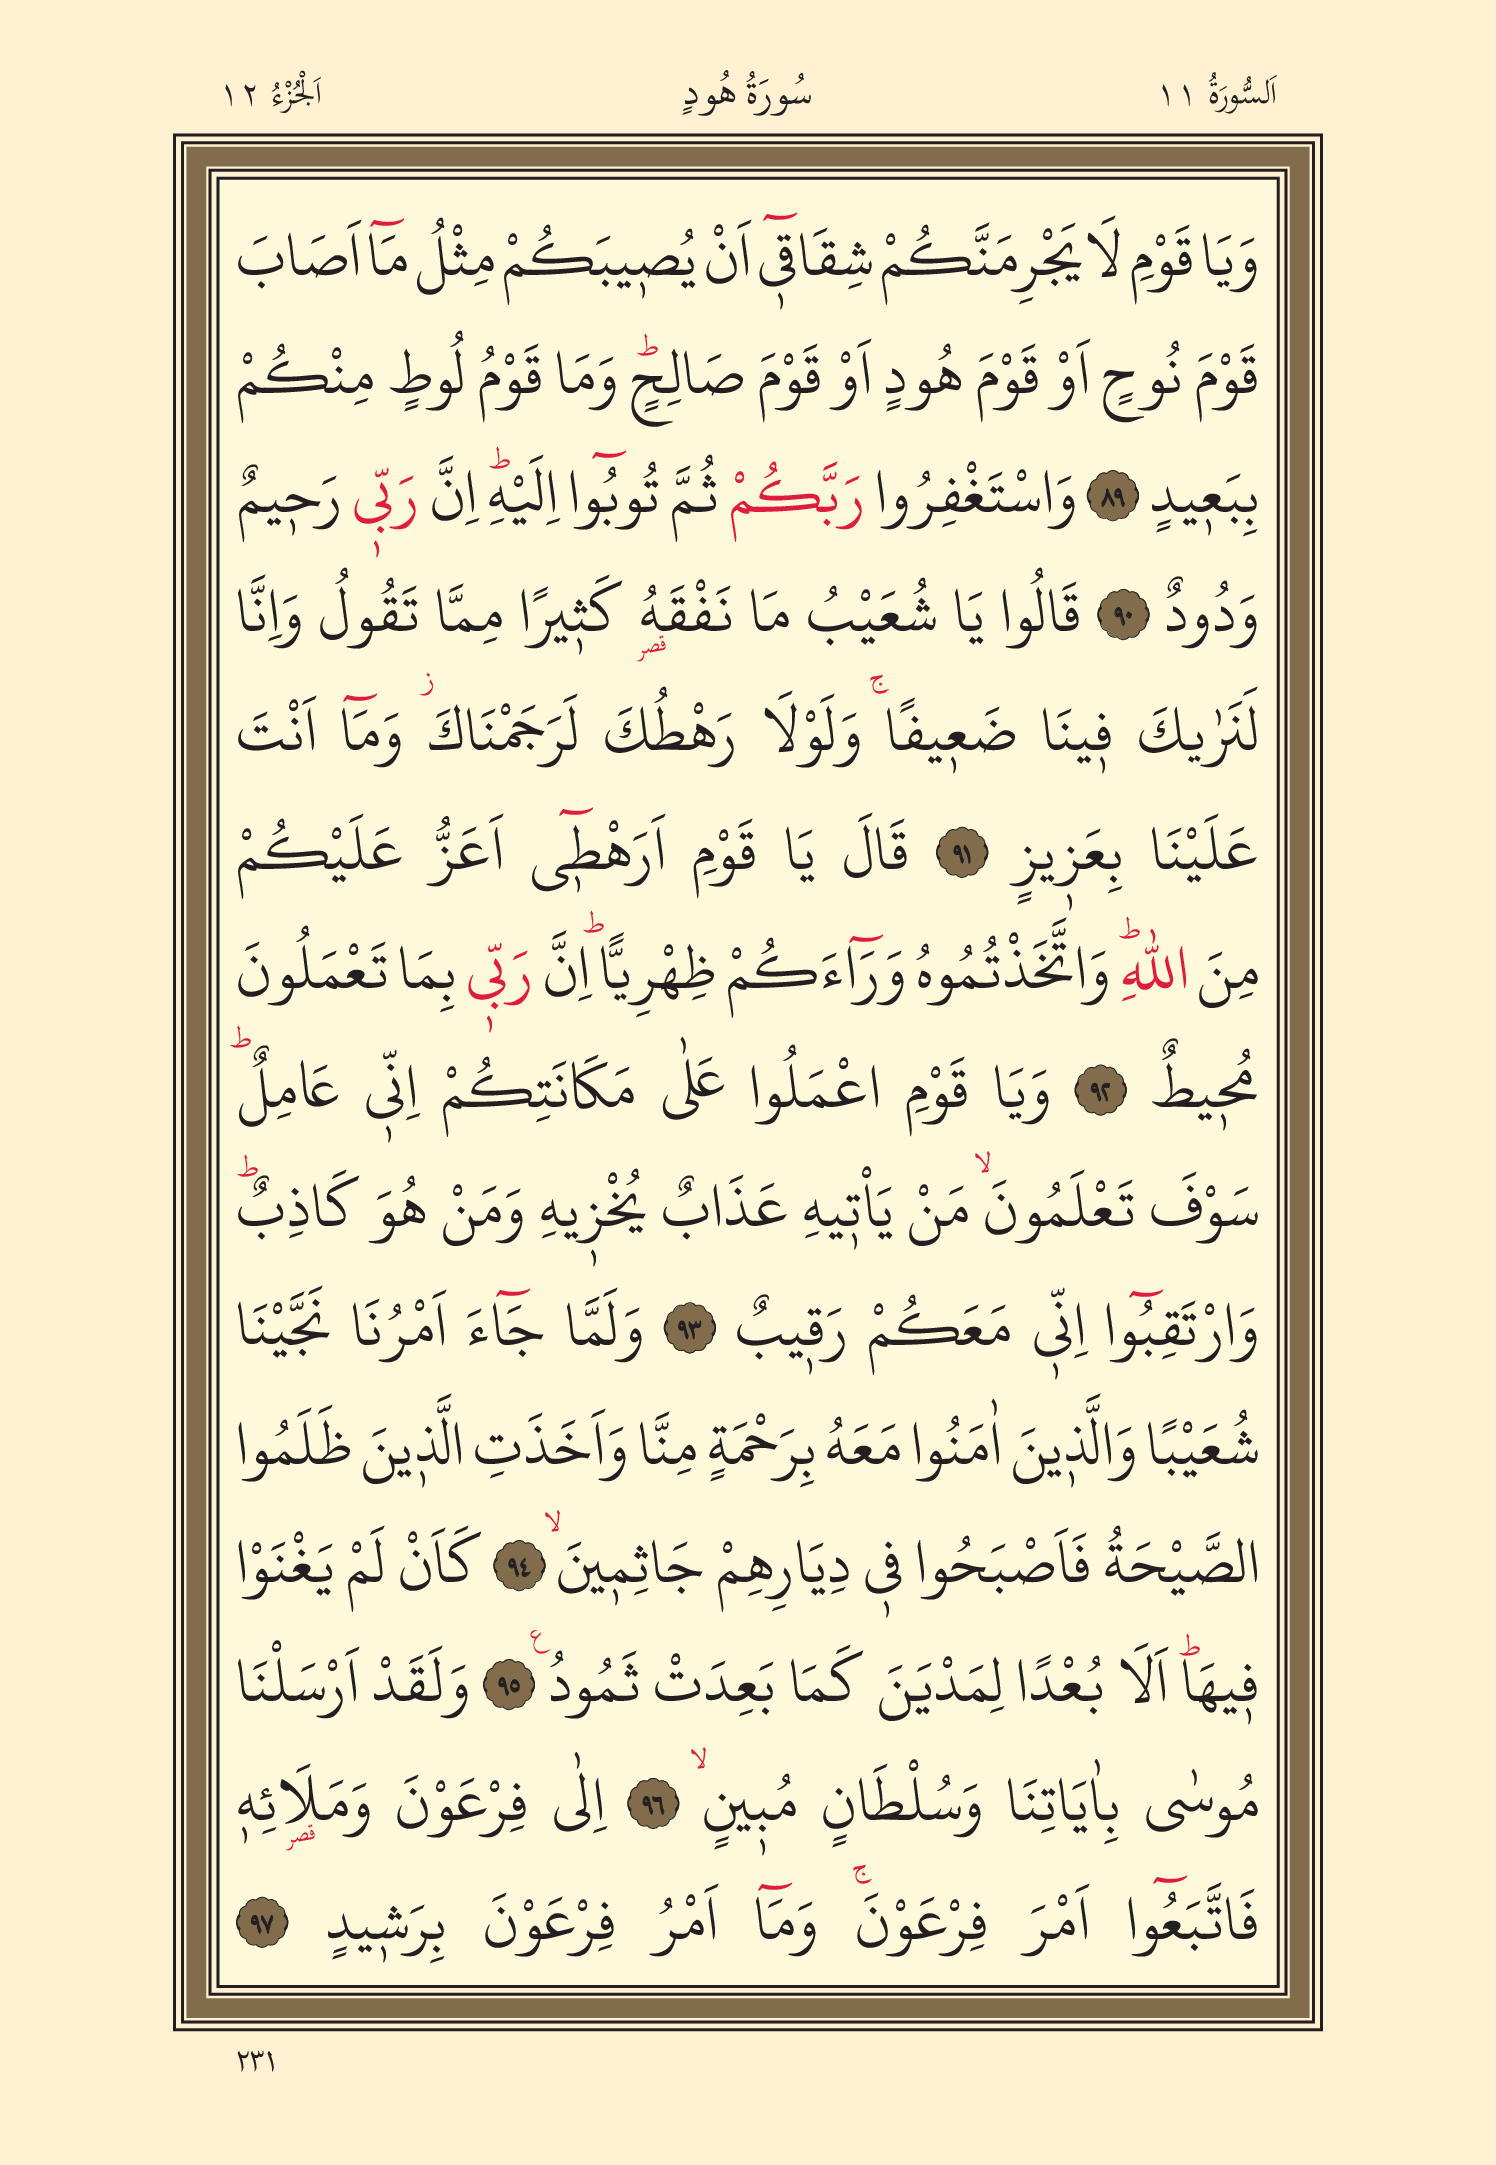 اَلسُّورَةُ ١١ سُورَةُ هُودٍ اَلْجُزْءُ ١٢
وَيَا قَوْمِ لَا يَجْرِمَنَّكُمْ شِقَاقٖٓى اَنْ يُصٖيبَكُمْ مِثْلُ مَٓا اَصَابَ
قَوْمَ نُوحٍ اَوْ قَوْمَ هُودٍ اَوْ قَوْمَ صَالِحٍؕ وَمَا قَوْمُ لُوطٍ مِنْكُمْ
بِبَعٖيدٍ ﴿٨٩﴾ وَاسْتَغْفِرُوا رَبَّكُمْ ثُمَّ تُوبُٓوا اِلَيْهِؕ اِنَّ رَبّٖى رَحٖيمٌ
وَدُودٌ ﴿٩٠﴾ قَالُوا يَا شُعَيْبُ مَا نَفْقَهُ قصر كَثٖيرًا مِمَّا تَقُولُ وَاِنَّا
لَنَرٰيكَ فٖينَا ضَعٖيفًاۚ وَلَوْلَا رَهْطُكَ لَرَجَمْنَاكَؗ وَمَٓا اَنْتَ
عَلَيْنَا بِعَزٖيزٍ ﴿٩١﴾ قَالَ يَا قَوْمِ اَرَهْطٖٓى اَعَزُّ عَلَيْكُمْ
مِنَ اللّٰهِؕ وَاتَّخَذْتُمُوهُ وَرَٓاءَكُمْ ظِهْرِيًّاؕ اِنَّ رَبّٖى بِمَا تَعْمَلُونَ
مُحٖيطٌ ﴿٩٢﴾ وَيَا قَوْمِ اعْمَلُوا عَلٰى مَكَانَتِكُمْ اِنّٖى عَامِلٌؕ
سَوْفَ تَعْلَمُونَۙ مَنْ يَاْتٖيهِ عَذَابٌ يُخْزٖيهِ وَمَنْ هُوَ كَاذِبٌؕ
وَارْتَقِبُٓوا اِنّٖى مَعَكُمْ رَقٖيبٌ ﴿٩٣﴾ وَلَمَّا جَٓاءَ اَمْرُنَا نَجَّيْنَا
شُعَيْبًا وَالَّذٖينَ اٰمَنُوا مَعَهُ بِرَحْمَةٍ مِنَّا وَاَخَذَتِ الَّذٖينَ ظَلَمُوا
الصَّيْحَةُ فَاَصْبَحُوا فٖى دِيَارِهِمْ جَاثِمٖينَۙ ﴿٩٤﴾ كَاَنْ لَمْ يَغْنَوْا
فٖيهَاؕ اَلَا بُعْدًا لِمَدْيَنَ كَمَا بَعِدَتْ ثَمُودُ ع ﴿٩٥﴾ وَلَقَدْ اَرْسَلْنَا
مُوسٰى بِاٰيَاتِنَا وَسُلْطَانٍ مُبٖينٍۙ ﴿٩٦﴾ اِلٰى فِرْعَوْنَ وَمَلَائِهٖ قصر
فَاتَّبَعُٓوا اَمْرَ فِرْعَوْنَۚ وَمَٓا اَمْرُ فِرْعَوْنَ بِرَشٖيدٍ ﴿٩٧﴾
٢٣١